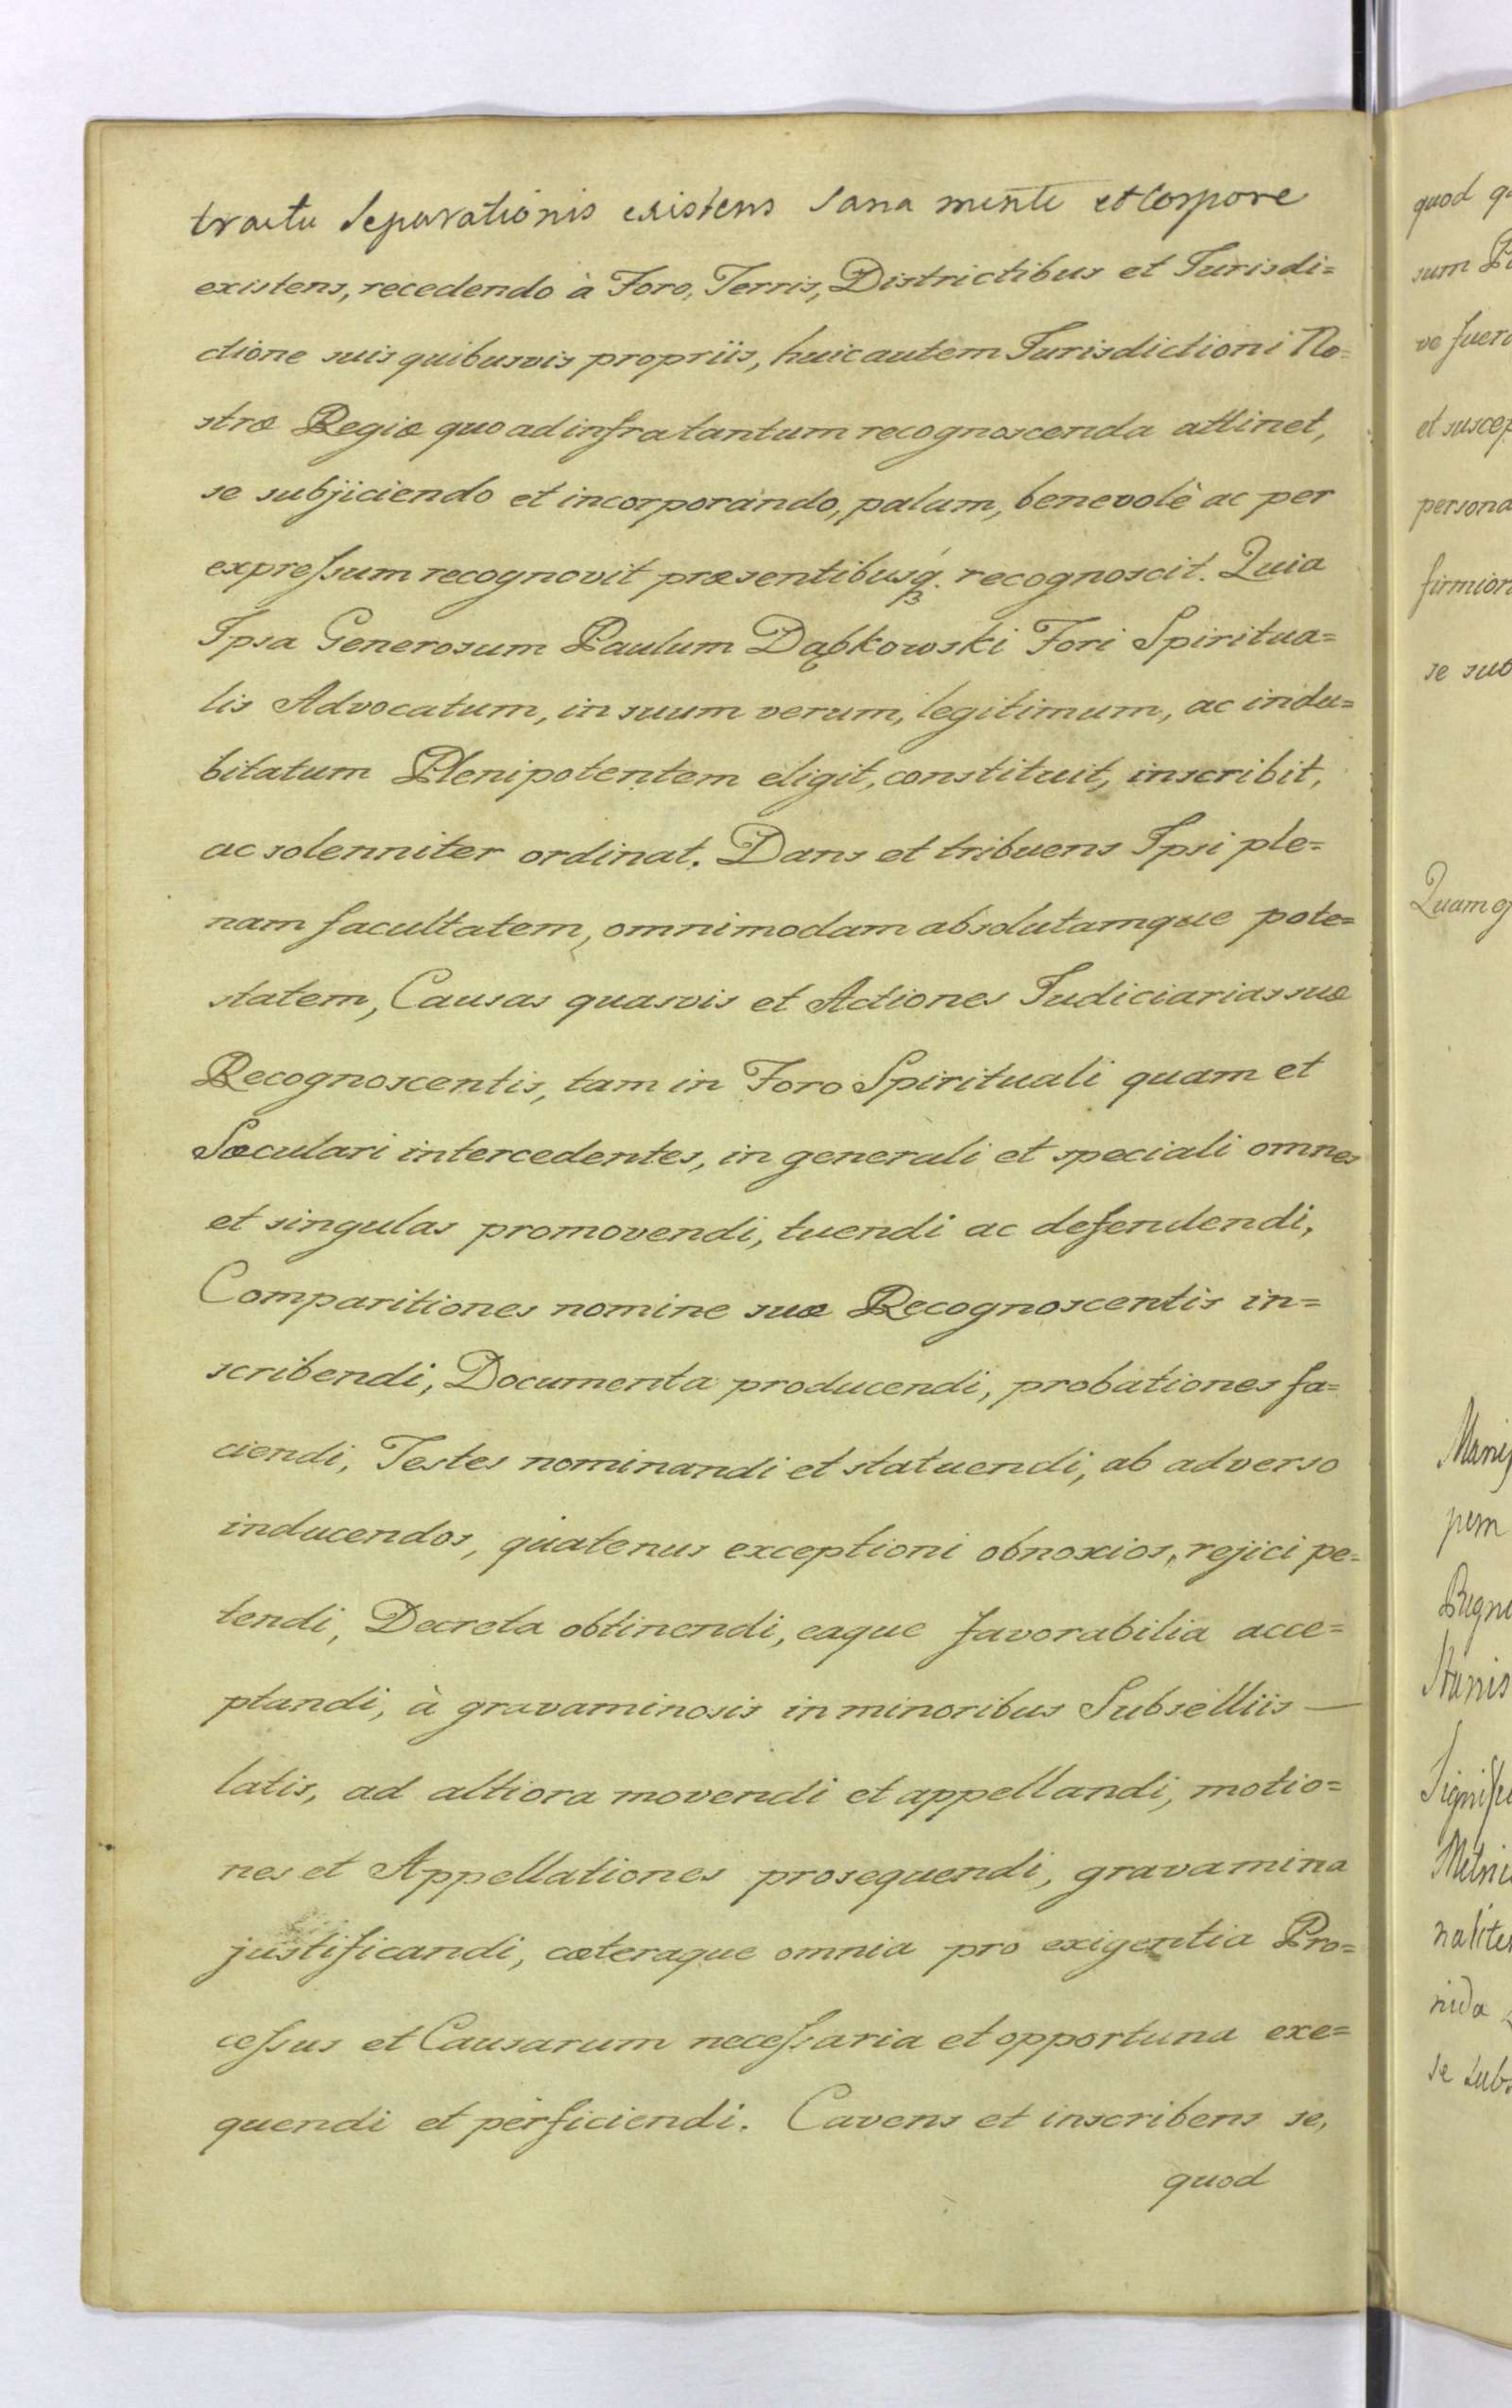 tractu Separationis existens sana mente et Corpore
existens, recedendo à Foro, Terris, Districtibus et Jurisdi=
ctione suis quibusvis propriis, huic autem Jurisdictioni No=
stræ Regiæ quo ad infra tantum recognoscenda attinet,
se subjiciendo et incorporando, palam, benevolè ac per
expreſsum recognovit præsentibusq. recognoscit. Quia
Ipsa Generosum Paulum Dąbkowski Fori Spiritua=
lis Advocatum, in suum verum, legitimum, ac indu=
bitatum Plenipotentem eligit, constituit, inscribit,
ac solenniter ordinat. Dans et tribuens Ipsi ple=
nam facultatem, omnimodam absolutamque pote=
statem, Causas quasvis et Actiones Judiciarias suæ
Recognoscentis, tam in Foro Spirituali quam et
Sæculari intercedentes, in generali et speciali omnes
et singulas promovendi, tuendi ac defendendi,
Comparitiones nomine suæ Recognoscentis in=
scribendi, Documenta producendi, probationes fa=
ciendi, Testes nominandi et statuendi, ab adverso
inducendos, quatenus exceptioni obnoxios, rejici pe=
tendi, Decreta obtinendi, eaque favorabilia acce=
ptandi, à gravaminosis in minoribus Subselliis —
latis, ad altiora movendi et appellandi, motio=
nes et Appellationes prosequendi, gravamina
justificandi, cæteraque omnia pro exigentia Pro=
ceſsus et Causarum neceſsaria et opportuna exe=
quendi et perficiendi. Cavens et inscribens se,
quod
quod
sum
ve
et
persona
se
Quam
pem
nida
se